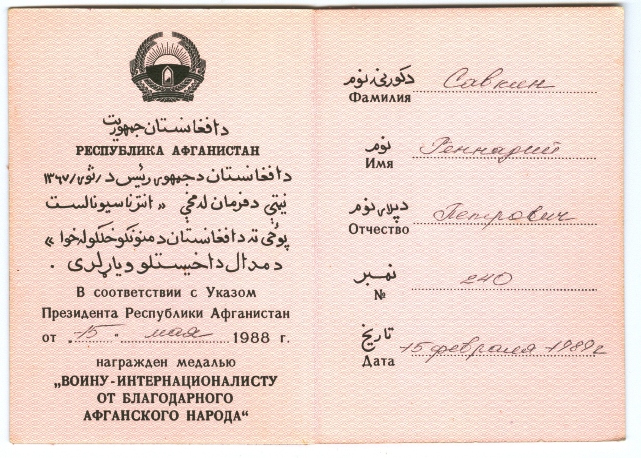 د افغانستان جمهوریت
РЕСПУБЛИКА АФГАНИСТАН
د افغانستان د جمهوری رئیس د ثور / ۱۳۶۷
نیټې د فرمان له مخې « انترناسیونالست
پوځی ته د افغانستان د منونکو خلکو له خوا »
د مدال د اخیستلو ویاړ لری .
В соответствии с Указом
Президента Республики Афганистан
от „15“ мая 1988 г.
награжден медалью
„ВОИНУ-ИНТЕРНАЦИОНАЛИСТУ
ОТ БЛАГОДАРНОГО
АФГАНСКОГО НАРОДА“
د کورنۍ نوم Савкин
Фамилия
نوم Геннадий
Имя
د پلار نوم Петрович
Отчество
نمبر 240
№
تاریخ 15 февраля 1989 г
Дата